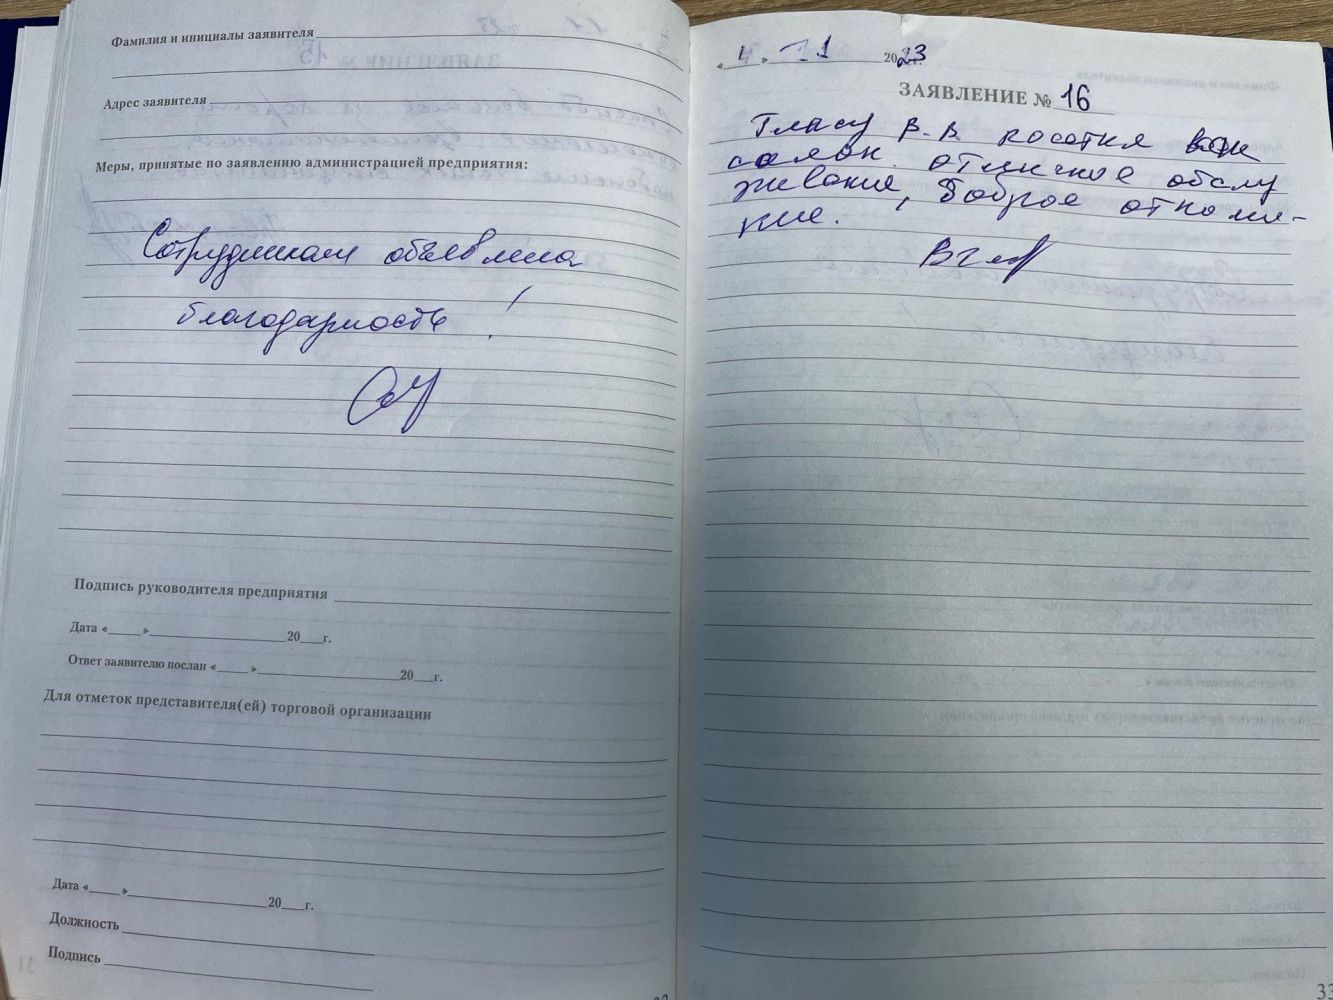 Фамилия и инициалы заявителя
Адрес заявителя
Меры, принятые по заявлению администрацией предприятия:
Сотрудникам объявлена
благодарность!
Подпись руководителя предприятия
Дата «____» ____ 20__г.
Ответ заявителю послан «____» ____ 20__г.
Для отметок представителя(ей) торговой организации
Дата «____» ____ 20__г.
Должность
Подпись
«4» 11 2023
ЗАЯВЛЕНИЕ № 16
В.В.
салон. отличное обслу
живание, Доброе отноше-
ние.
33